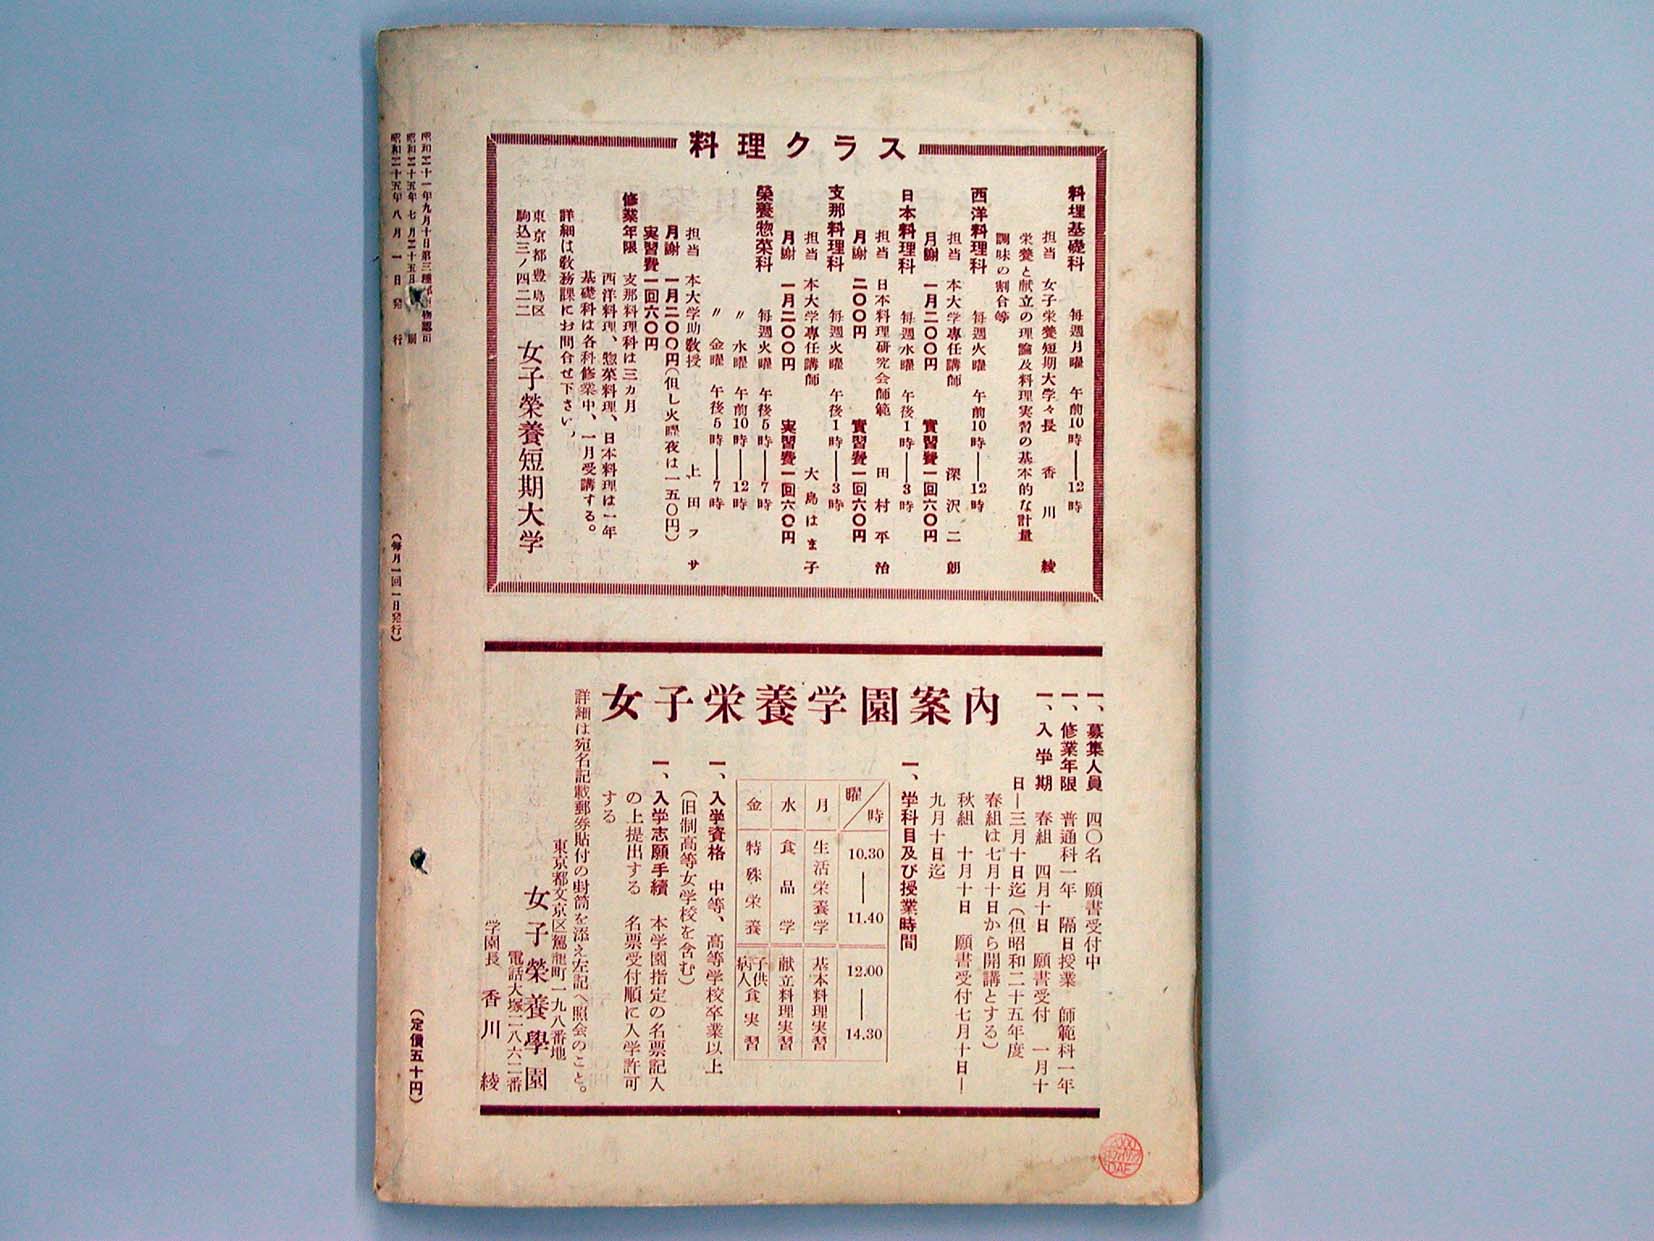 料理クラス
料理基礎科 毎週月曜 午前10時――12時
担当 女子栄養短期大学々長 香川 綾
栄養と献立の理論及料理実習の基本的な計量
調味の割合等
西洋料理科 毎週火曜 午前10時――12時
担当 本大学専任講師 深沢二朗
月謝 一月二〇〇円 實習費一回六〇円
日本料理科 毎週水曜 午後1時――3時
担当 日本料理研究会師範 田村平治
月謝 二〇〇円 實習費一回六〇円
支那料理科 毎週火曜 午後1時――3時
担当 本大学専任講師 大島はま子
月謝 一月二〇〇円 実習費一回六〇円
榮養惣菜科 毎週火曜 午後5時――7時
〃 水曜 午前10時――12時
〃 金曜 午後5時――7時
担当 本大学助教授 上田フサ
月謝 一月二〇〇円(但し火曜夜は一五〇円)
実習費一回六〇円
修業年限 支那料理科は三カ月
西洋料理、惣菜料理、日本料理は一年
基礎科は各科修業中、一月受講する。
詳細は教務課にお問合せ下さい
東京都豊島区
駒込三ノ四二二
女子榮養短期大学
女子栄養学園案内
一、募集人員 四〇名 願書受付中
一、修業年限 普通科一年 隔日授業 師範科一年
一、入学期 春組 四月十日 願書受付 一月十
日―三月十日迄(但昭和二十五年度
春組は七月十日から開講とする)
秋組 十月十日 願書受付七月十日―
九月十日迄
一、学科目及び授業時間
曜/時 10.30――11.40 12.00――14.30
月 生活栄養学 基本料理実習
水 食品学 献立料理実習
金 特殊栄養 子供病人食実習
一、入学資格 中等、高等学校卒業以上
(旧制高等女学校を含む)
一、入学志願手続 本学園指定の名票記入
の上提出する 名票受付順に入学許可
する
詳細は宛名記載郵券貼付の封筒を添え左記へ照会のこと。
東京都文京区駕籠町一九八番地
女子榮養學園
電話大塚二八六二番
学園長 香川 綾
昭和二十一年九月十日第三種郵便物認可
昭和二十五年七月二十五日印刷
昭和二十五年八月一日発行
(毎月一回一日発行)
(定價五十円)